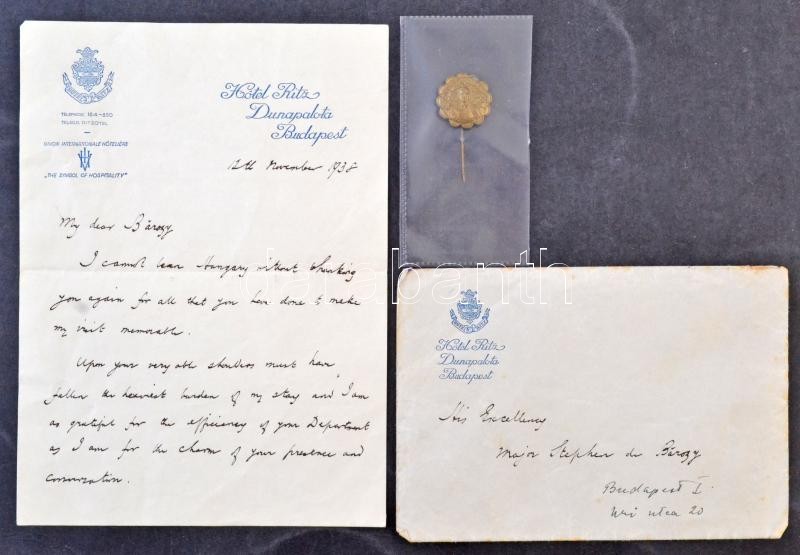 TELEPHONE: 184-850
UNION INTERNATIONALE HÔTELIÈRE
„THE SYMBOL OF HOSPITALITY"
Hôtel Ritz
Dunapalota
Budapest
12th November 1938
My dear Bárczy
I cannot leave Hungary without thanking
you again for all that you have done to make
my visit memorable.
Upon your very able shoulders must have
fallen the heaviest burden of my stay and I am
as grateful for the efficiency of your Department
as I am for the charm of your presence and
conversation.
darabanth
Hôtel Ritz
Dunapalota
Budapest
His Excellency
Major Stephen de Bárczy
Budapest I.
Uri utca 20